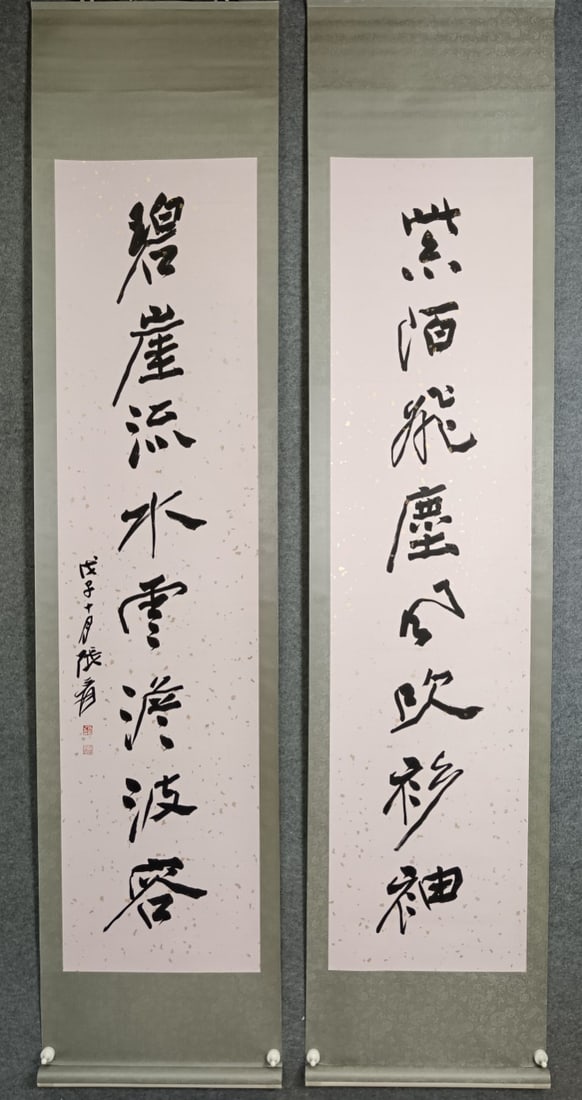 紫陌飛塵風吹衫袖
碧崖流水雲澹波容
戊子十月張爰